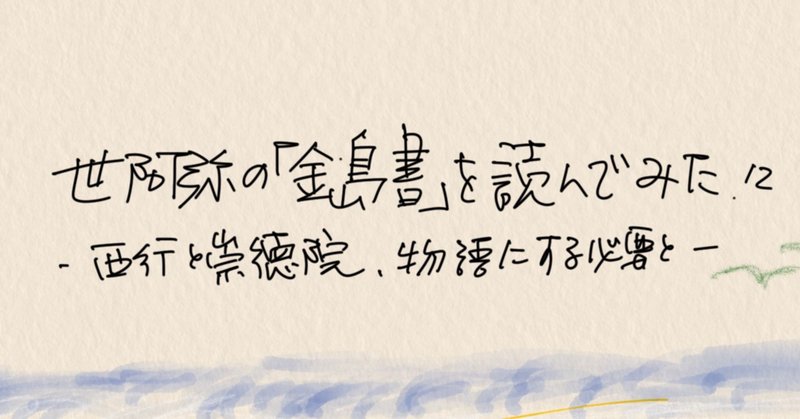 世阿弥の「金島書」を読んでみた.12
-西行と崇徳院、物語にする必要と-